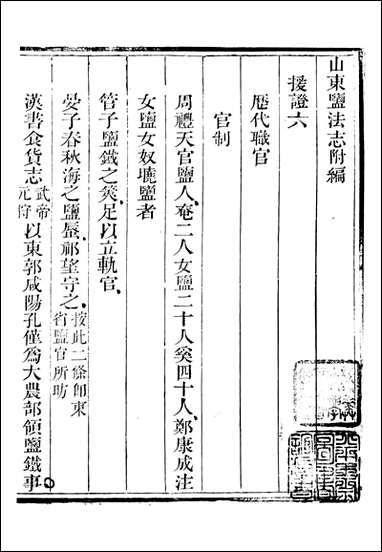 山東鹽法志附編
援證六
歷代職官
官制
周禮天官鹽人奄二人女鹽二十人奚四十人鄭康成注
女鹽女奴曉鹽者
管子鹽鐵之筴足以立軌官
晏子春秋海之鹽蜃祈望守之按此二條卽東省鹽官所昉
漢書食貨志武帝元狩以東郭咸陽孔僅爲大農部領鹽鐵事